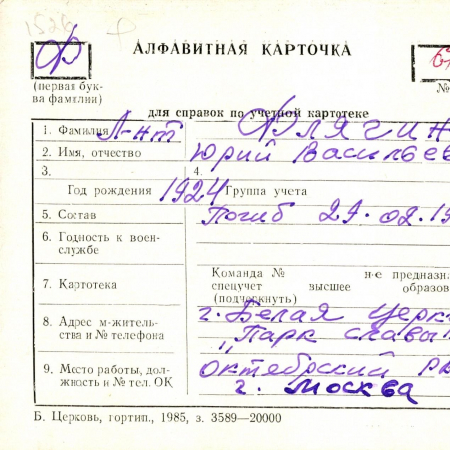 1526
Ф
АЛФАВИТНАЯ КАРТОЧКА
(первая бук-
ва фамилии)
№
для справок по учетной картотеке
1. Фамилия Л-нт Флягин
2. Имя, отчество Юрий Василье
3. 4.
Год рождения 1924 Группа учета
5. Состав Погиб 29.02.19
6. Годность к воен-
службе
7. Картотека
Команда № не предназна
спецучет высшее образов
(подчеркнуть)
8. Адрес м-житель-
ства и № телефона
г. Белая Церк
"Парк славы
9. Место работы, дол-
жность и № тел. ОК
Октябрский р
г. Москва
Б. Церковь, гортип., 1985, з. 3589—20000